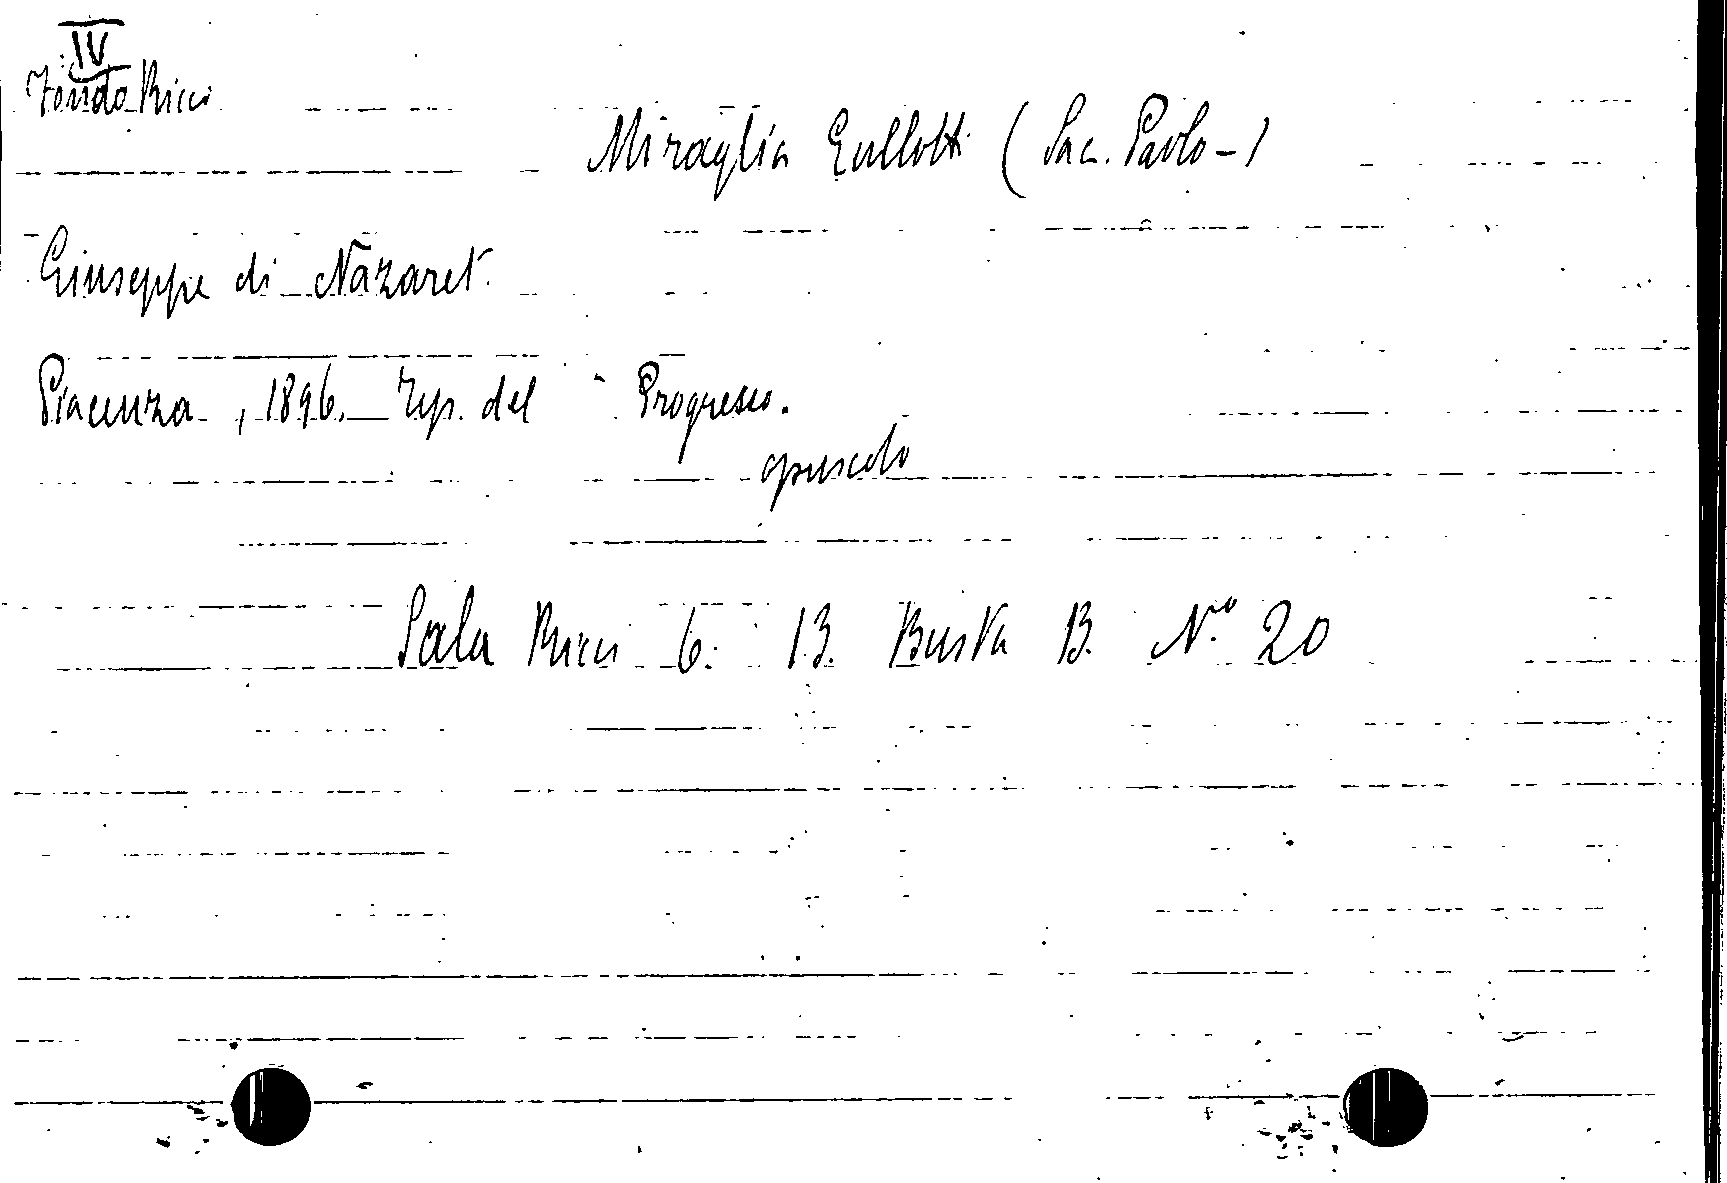 IV
Fondo Ricci
Miraglia Gullotti (Sac. Paolo -)
Giuseppe di Nazaret.
Piacenza, 1896. Tip. del Progresso.
opuscolo
Sala Ricci 6. 13. Busta B. N.º 20